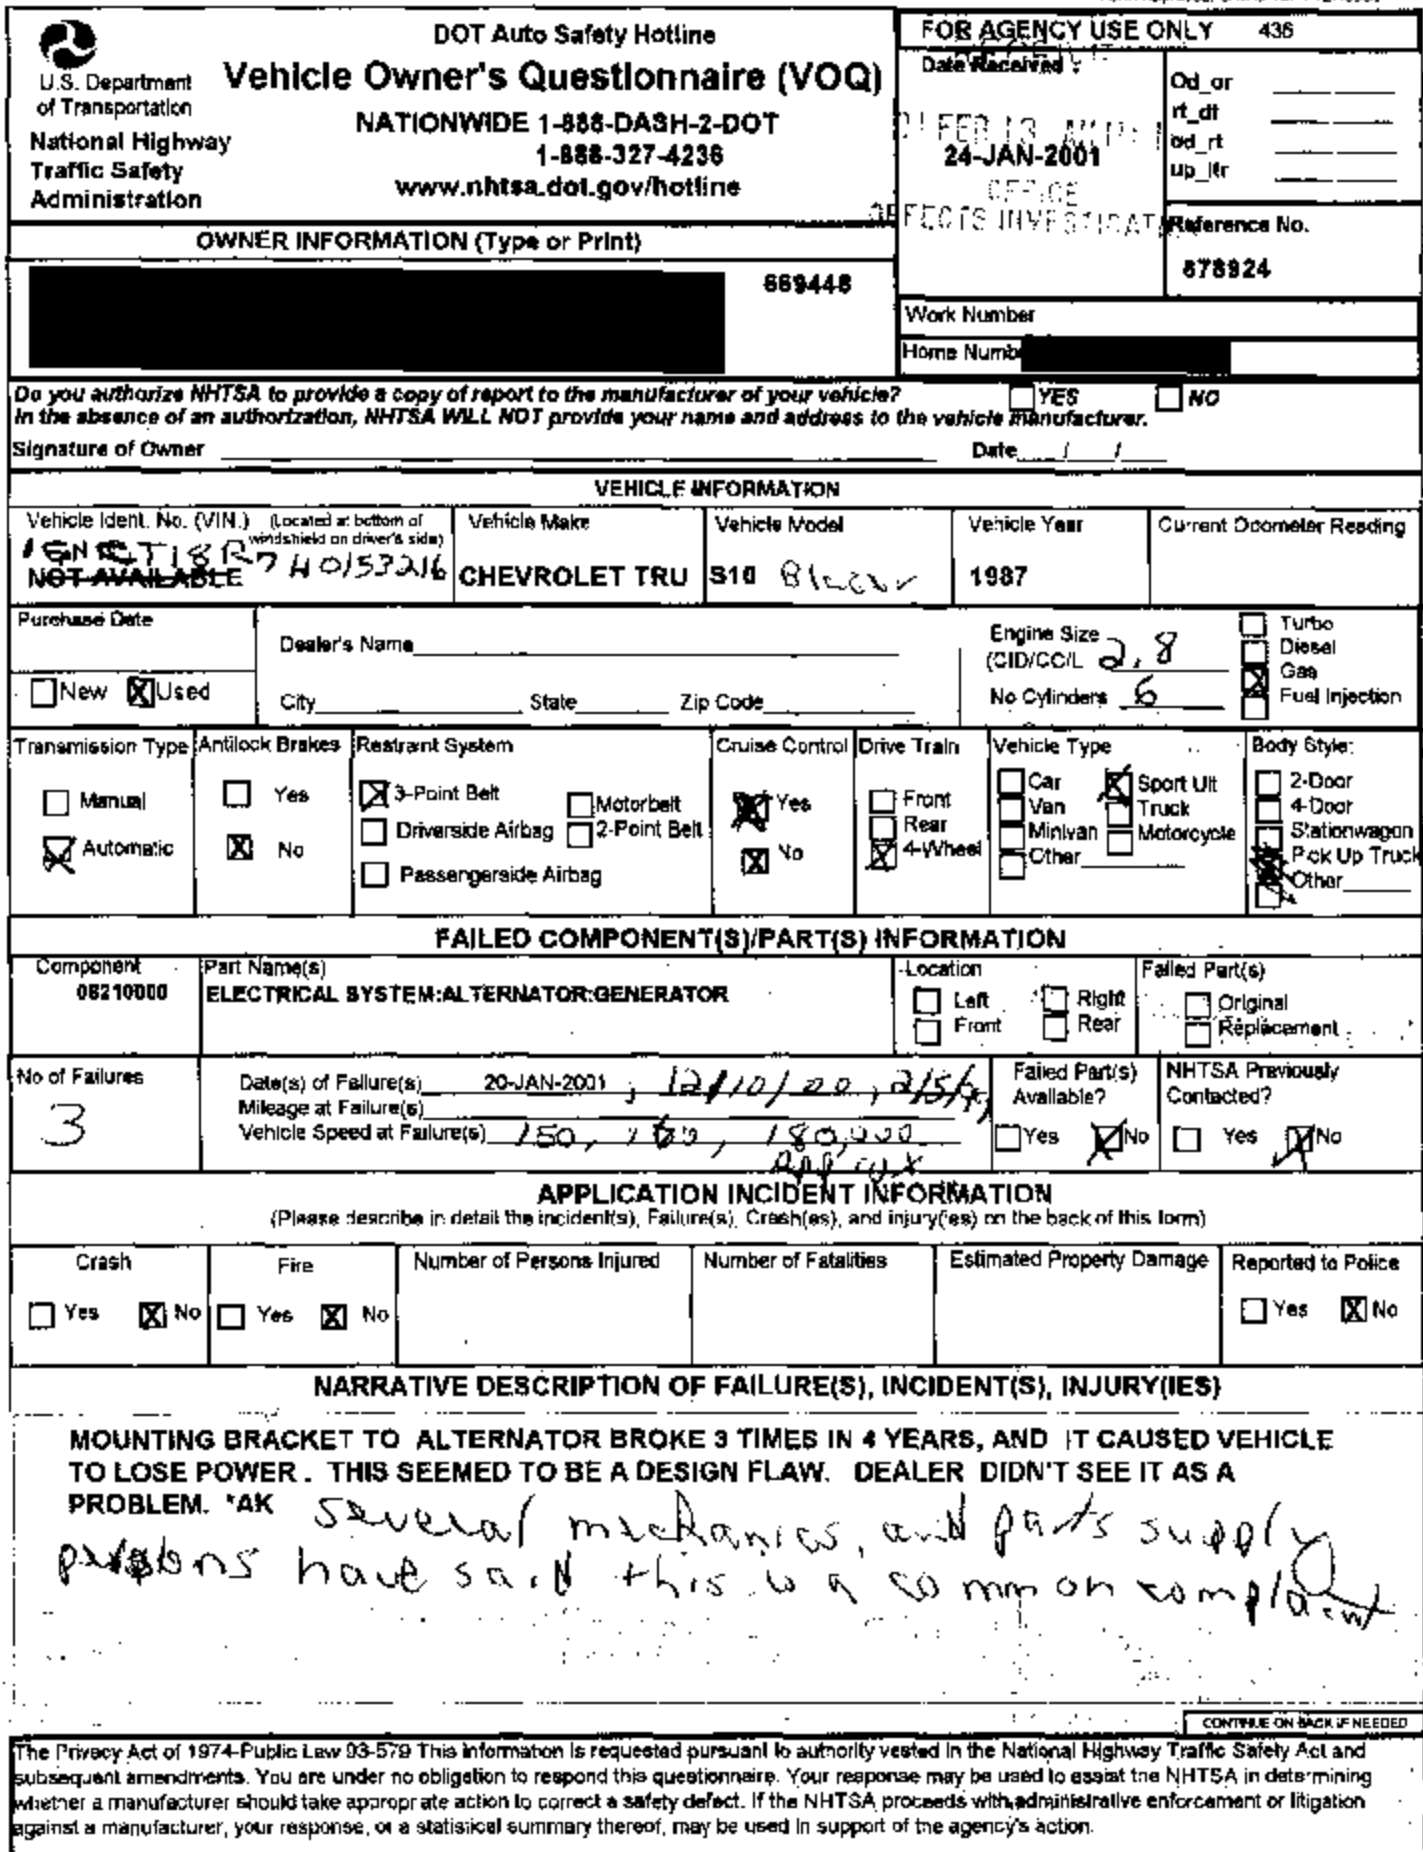 DOT Auto Safety Hotline
Vehicle Owner's Questionnaire (VOQ)
NATIONWIDE 1-888-DASH-2-DOT
1-888-327-4236
www.nhtsa.dot.gov/hotline
U.S. Department
of Transportation
National Highway
Traffic Safety
Administration
FOR AGENCY USE ONLY 436
Date Received
FEB 13
24-JAN-2001
OFFICE
DEFECTS INVESTIGAT
Od_or
rt_dt
od_rt
up_ltr
Reference No.
878924
OWNER INFORMATION (Type or Print)
669448
Work Number
Home Numb
Do you authorize NHTSA to provide a copy of report to the manufacturer of your vehicle? YES NO
In the absence of an authorization, NHTSA WILL NOT provide your name and address to the vehicle manufacturer.
Signature of Owner Date / /
VEHICLE INFORMATION
Vehicle Ident. No. (VIN.) (Located at bottom of windshield on driver's side)
NOT AVAILABLE
Vehicle Make
CHEVROLET TRU
Vehicle Model
S10 Blazer
Vehicle Year
1987
Current Odometer Reading
Purchase Date
New Used
Dealer's Name
City State Zip Code
Engine Size
(CID/CC/L 2.8
No Cylinders 6
Turbo
Diesel
Gas
Fuel Injection
Transmission Type
Manual
Automatic
Antilock Brakes
Yes
No
Restraint System
3-Point Belt
Driverside Airbag
Passengerside Airbag
Motorbelt
2-Point Belt
Cruise Control
Yes
No
Drive Train
Front
Rear
4-Wheel
Vehicle Type
Car
Van
Minivan
Other
Sport Ult
Truck
Motorcycle
Body Style:
2-Door
4-Door
Stationwagon
Pick Up Truck
Other
FAILED COMPONENT(S)/PART(S) INFORMATION
Component
06210000
Part Name(s)
ELECTRICAL SYSTEM:ALTERNATOR:GENERATOR
Location
Left Right
Front Rear
Failed Part(s)
Original
Replacement
No of Failures
3
Date(s) of Failure(s) 20-JAN-2001 , 12/10/00,
Mileage at Failure(s)
Vehicle Speed at Failure(s) 150, 160, 180,000
approx
Failed Part(s)
Available?
Yes No
NHTSA Previously
Contacted?
Yes No
APPLICATION INCIDENT INFORMATION
(Please describe in detail the incident(s), Failure(s), Crash(es), and injury(ies) on the back of this form)
Crash
Yes No
Fire
Yes No
Number of Persons Injured
Number of Fatalities
Estimated Property Damage
Reported to Police
Yes No
NARRATIVE DESCRIPTION OF FAILURE(S), INCIDENT(S), INJURY(IES)
MOUNTING BRACKET TO ALTERNATOR BROKE 3 TIMES IN 4 YEARS, AND IT CAUSED VEHICLE
TO LOSE POWER . THIS SEEMED TO BE A DESIGN FLAW. DEALER DIDN'T SEE IT AS A
PROBLEM. *AK Several mechanics, and parts supply
persons have said this is a common complaint
CONTINUE ON BACK IF NEEDED
The Privacy Act of 1974-Public Law 93-579 This information is requested pursuant to authority vested in the National Highway Traffic Safety Act and
subsequent amendments. You are under no obligation to respond this questionnaire. Your response may be used to assist the NHTSA in determining
whether a manufacturer should take appropriate action to correct a safety defect. If the NHTSA proceeds with administrative enforcement or litigation
against a manufacturer, your response, or a statistical summary thereof, may be used in support of the agency's action.